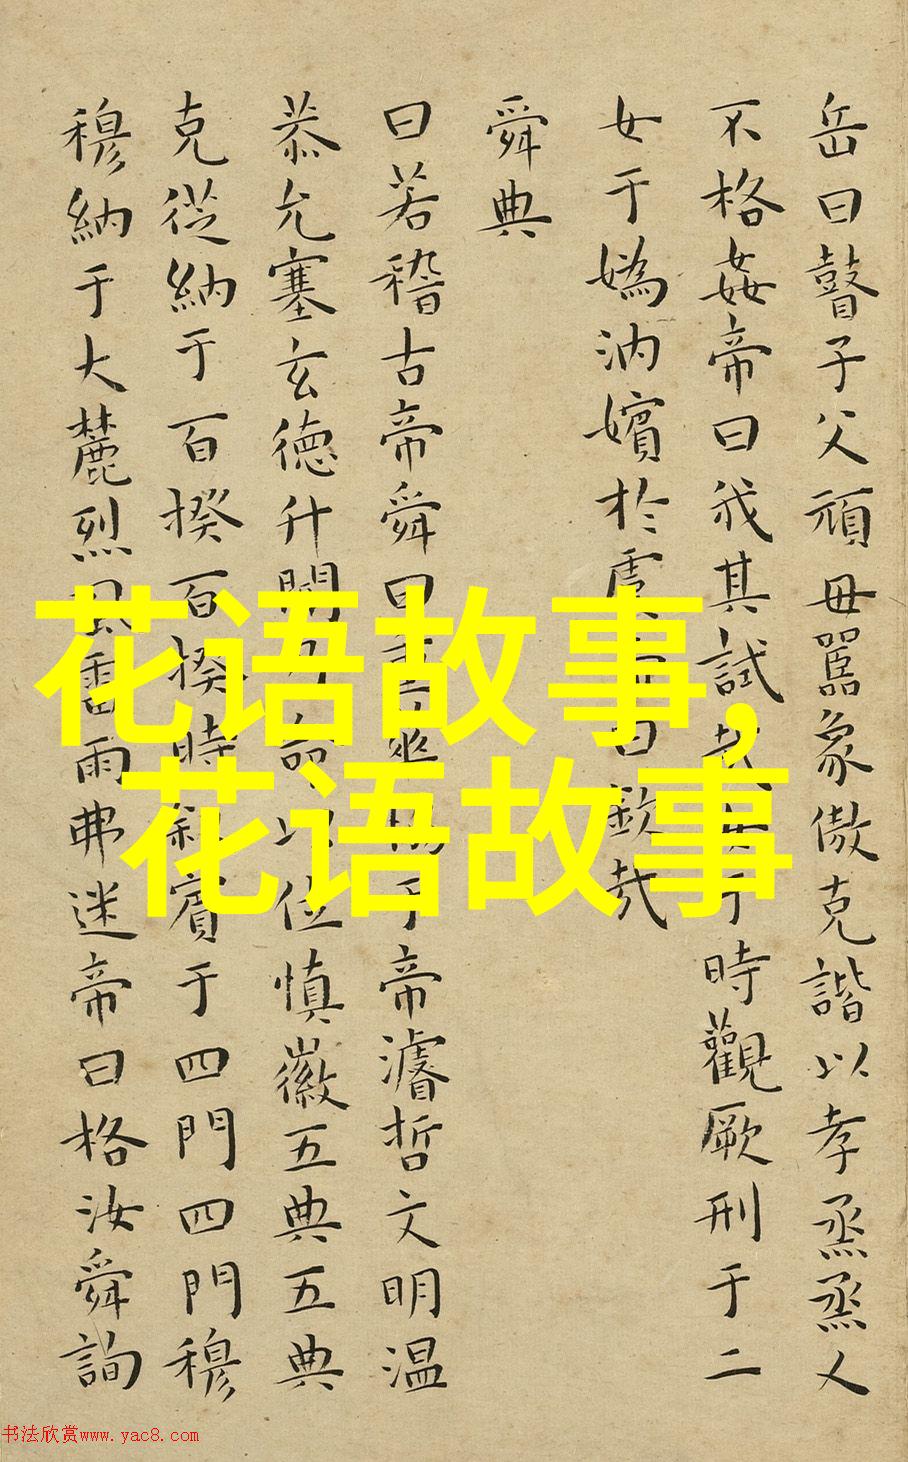 岳曰瞽子父頑母嚚象傲克諧以孝烝烝乂
不格姦帝曰我其試哉女于時觀厥刑于二
女于媯汭嬪於虞帝曰欽哉
舜典
曰若稽古帝舜曰重華協于帝濬哲文明温
恭允塞玄德升聞乃命以位慎徽五典五典
克從納于百揆百揆時叙賓于四門四門穆
穆納于大麓烈風雷雨弗迷帝曰格汝舜詢
花语故事,
花语故事
书法欣赏www.yac8.com